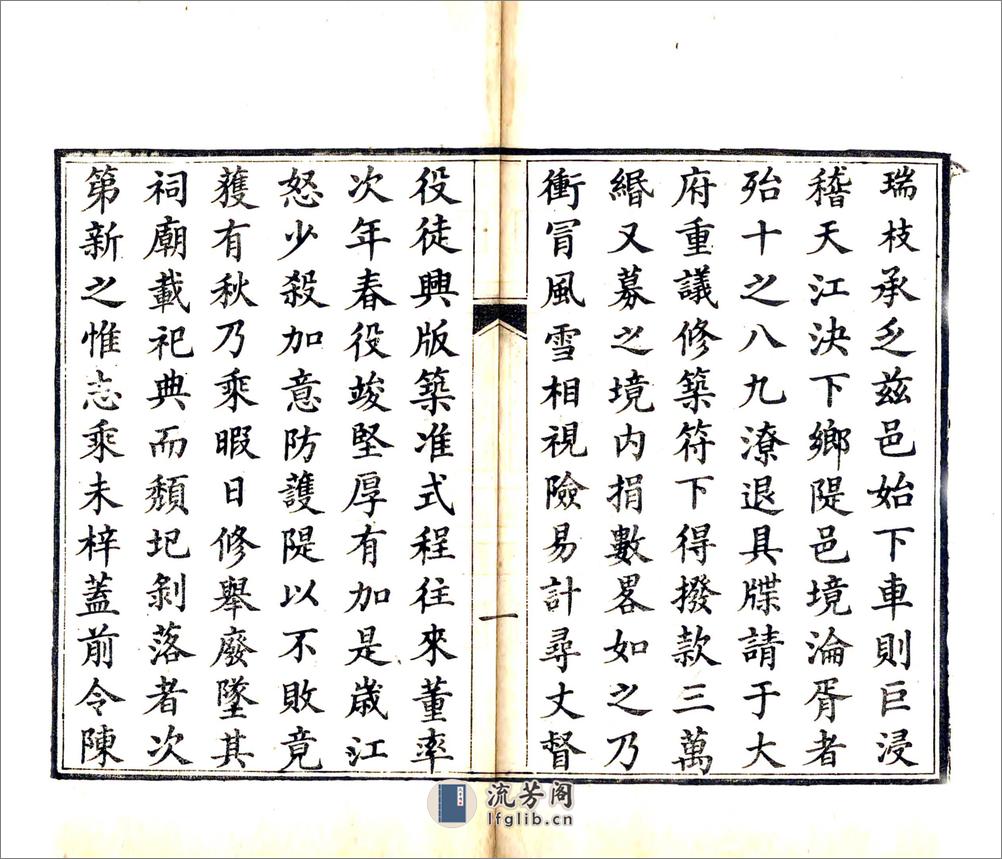 瑞枝承乏茲邑始下車則巨浸
稽天江決下鄉隄邑境淪胥者
殆十之八九潦退具牒請于大
府重議修築符下得撥款三萬
緡又募之境內捐數畧如之乃
衝冒風雪相視險易計尋丈督
一
役徒興版築准式程往來董率
次年春役竣堅厚有加是歲江
怒少殺加意防護隄以不敗竟
獲有秋乃乘暇日修舉廢墜其
祠廟載祀典而頹圯剝落者次
第新之惟志乘未梓蓋前令陳
流芳阁
lfglib.cn